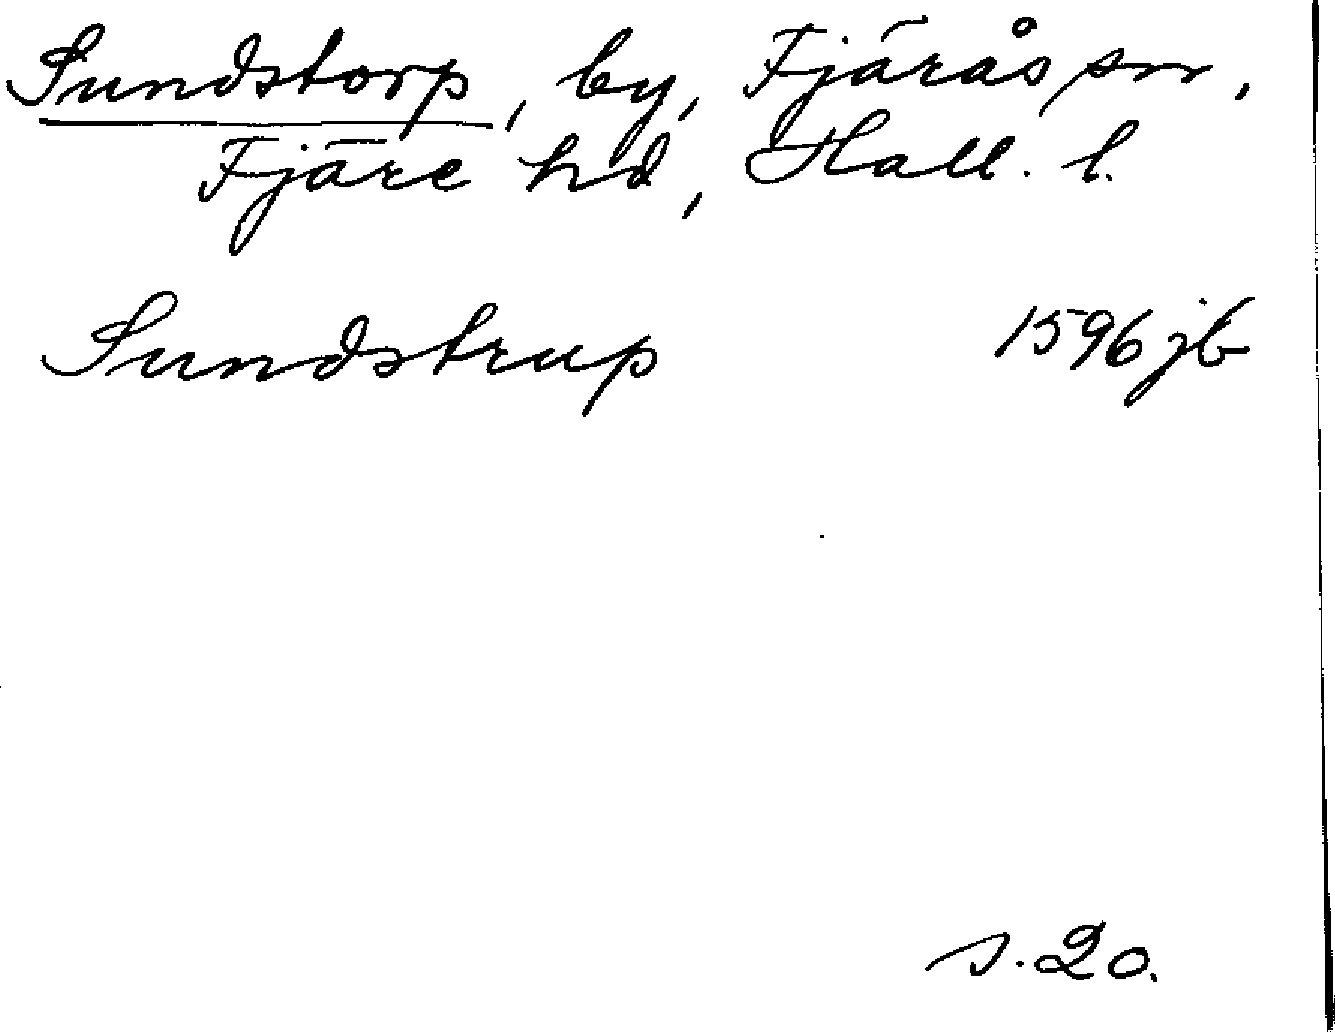 Sundstorp, by, Fjärås sn,
Fjäre hd, Hall. l.
Sundstrup 1596 jb
s. 20.